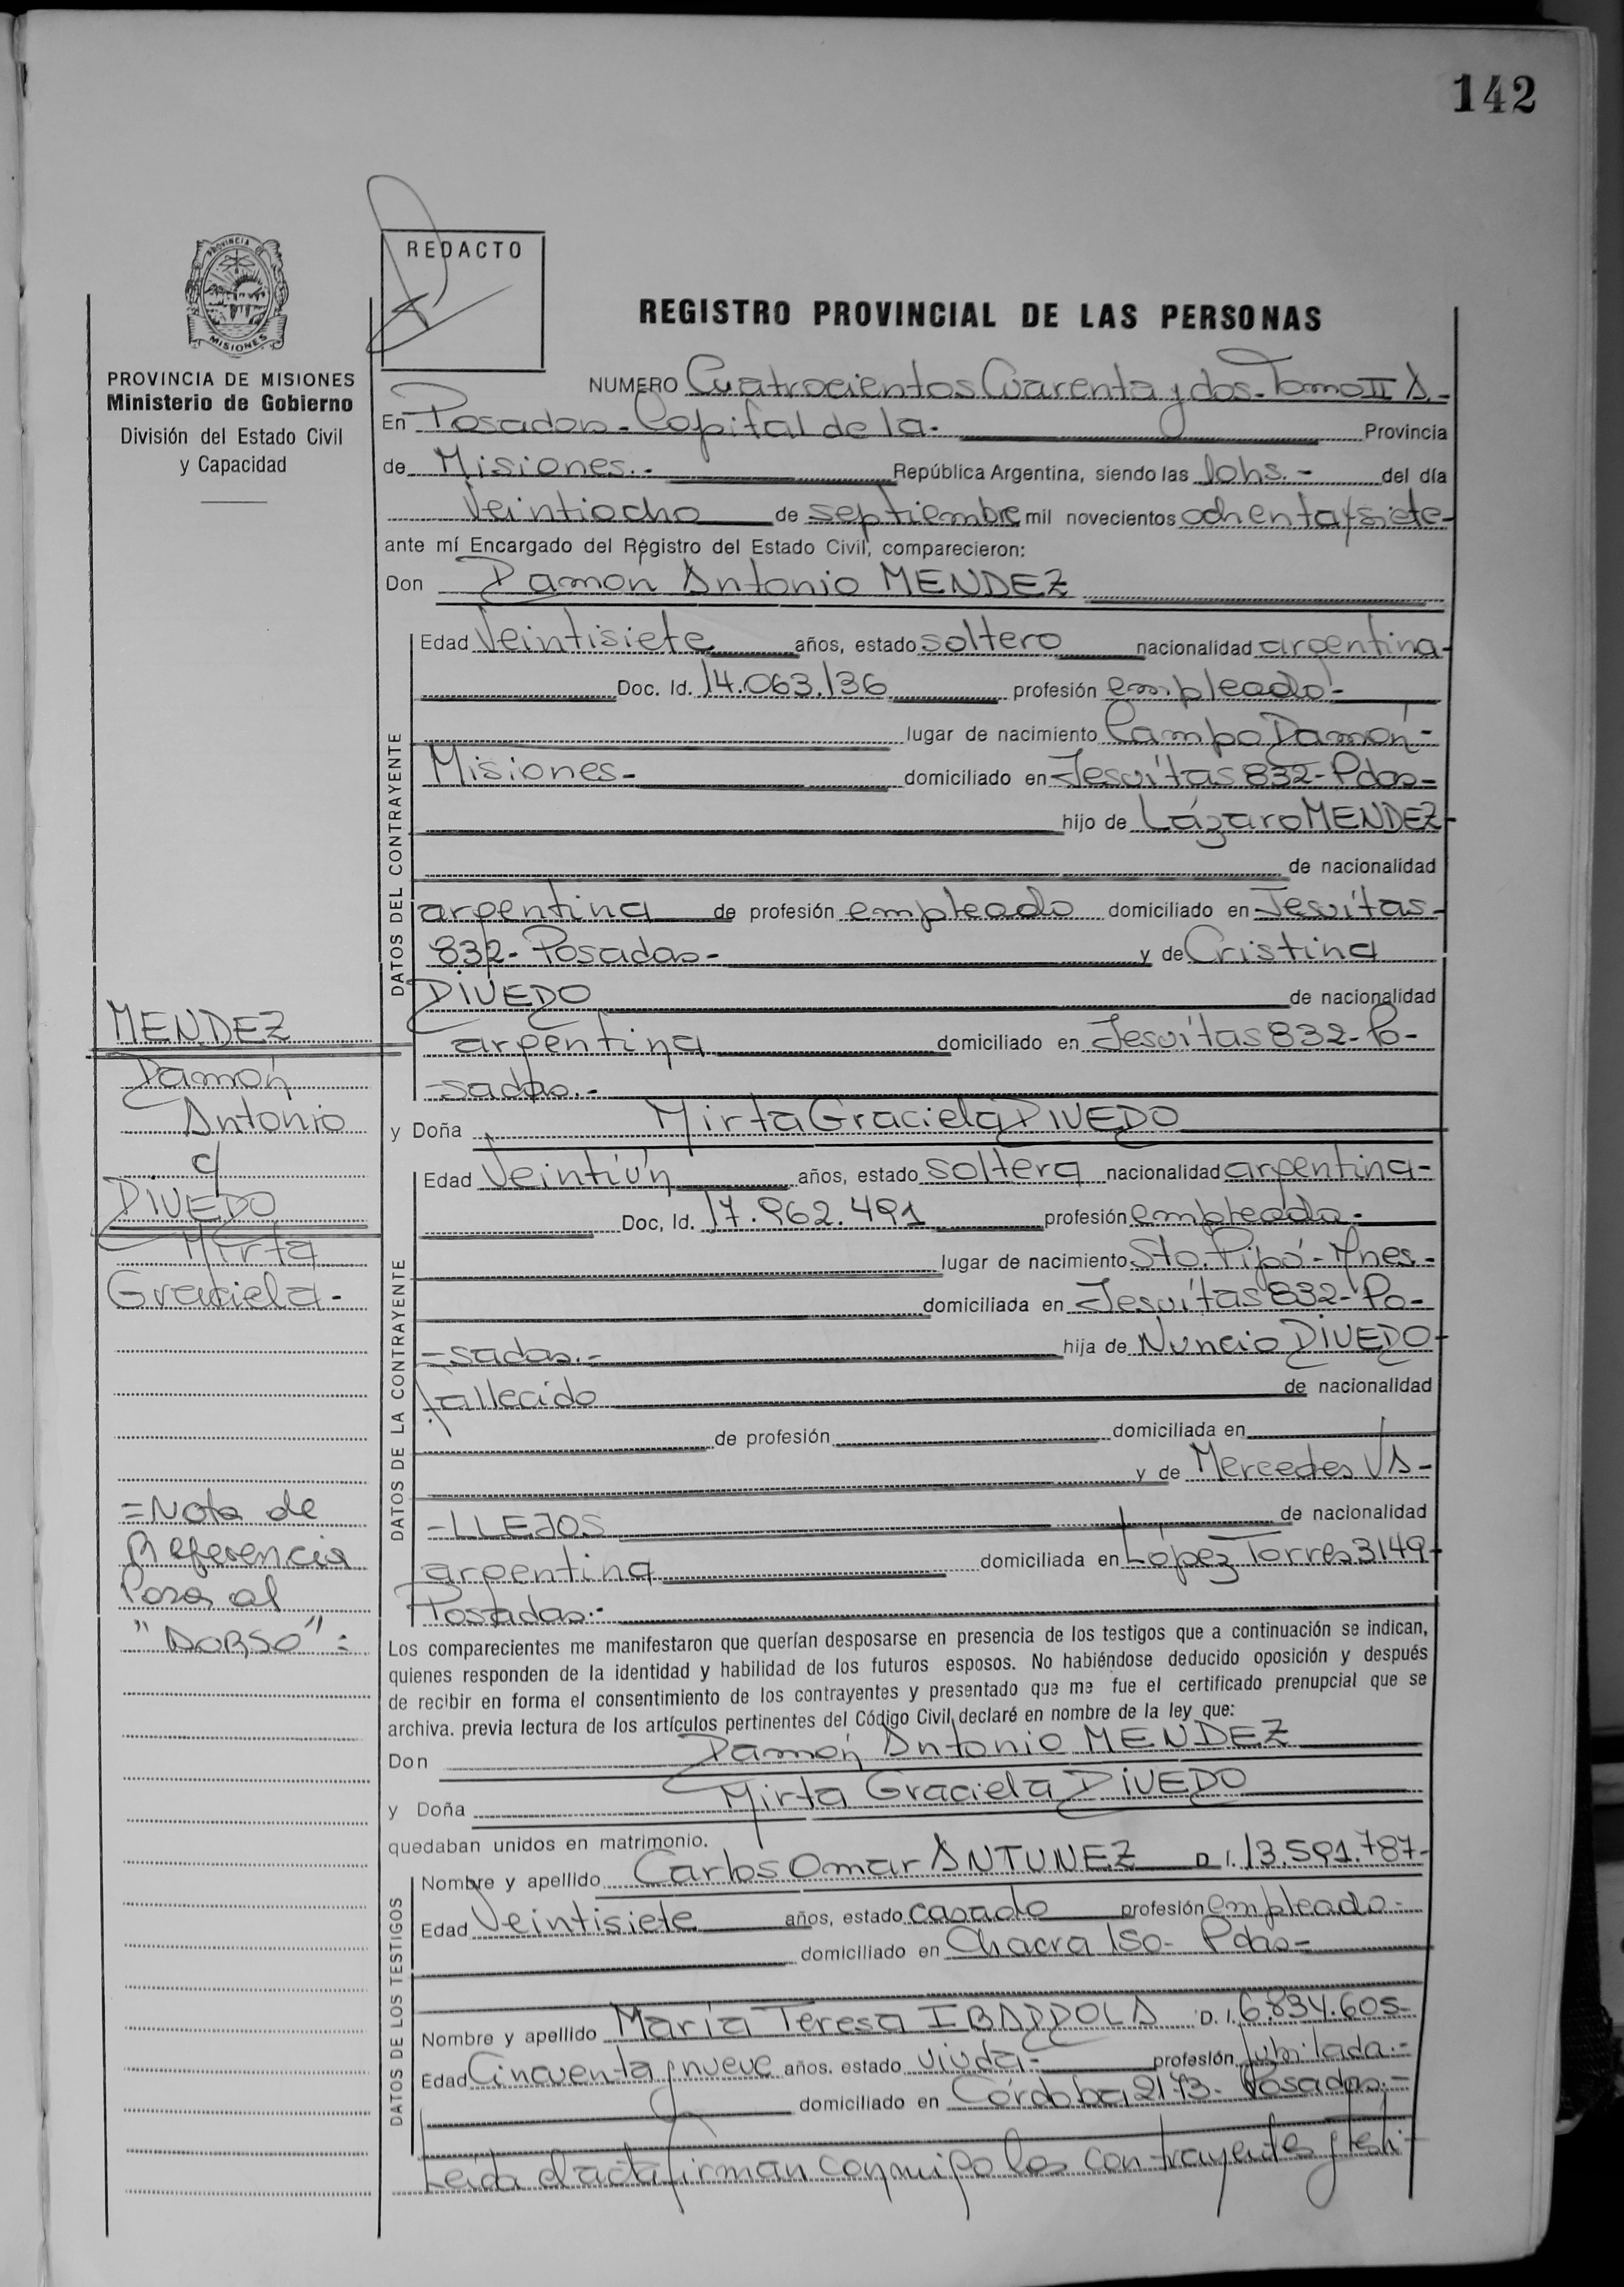 142
PROVINCIA DE MISIONES
Ministerio de Gobierno
División del Estado Civil
y Capacidad
REDACTO
REGISTRO PROVINCIAL DE LAS PERSONAS
NUMERO Cuatrocientos Cuarenta y dos - Tomo II A.-
En Posadas - Capital de la - Provincia
de Misiones.- República Argentina, siendo las 10hs.- del día
Veintiocho de septiembre mil novecientos ochenta y siete-
ante mí Encargado del Registro del Estado Civil, comparecieron:
Don Ramón Antonio MENDEZ
DATOS DEL CONTRAYENTE
Edad Veintisiete años, estado soltero nacionalidad argentina-
Doc. Id. 14.063.136 profesión empleado-
lugar de nacimiento Campo Ramón-
Misiones- domiciliado en Jesuítas 832- Pdas-
hijo de Lázaro MENDEZ-
de nacionalidad
argentina de profesión empleado domiciliado en Jesuítas-
832- Posadas- y de Cristina
RIVERO de nacionalidad
argentina domiciliado en Jesuítas 832- Po-
-sadas.-
y Doña Mirta Graciela RIVERO
DATOS DE LA CONTRAYENTE
Edad Veintiún años, estado soltera nacionalidad argentina-
Doc, Id. 17.962.491 profesión empleada-
lugar de nacimiento Sto. Pipó - Mnes-
domiciliada en Jesuítas 832- Po-
-sadas.- hija de Nuncio RIVERO-
fallecido de nacionalidad
de profesión domiciliada en
y de Mercedes VA-
-LLEJOS de nacionalidad
argentina domiciliada en López Torres 3149-
Posadas.-
Los comparecientes me manifestaron que querían desposarse en presencia de los testigos que a continuación se indican,
quienes responden de la identidad y habilidad de los futuros esposos. No habiéndose deducido oposición y después
de recibir en forma el consentimiento de los contrayentes y presentado que me fue el certificado prenupcial que se
archiva. previa lectura de los artículos pertinentes del Código Civil declaré en nombre de la ley que:
Don Ramón Antonio MENDEZ
y Doña Mirta Graciela RIVERO
quedaban unidos en matrimonio.
DATOS DE LOS TESTIGOS
Nombre y apellido Carlos Omar ANTUNEZ D.I. 13.591.787-
Edad Veintisiete años, estado casado profesión empleado-
domiciliado en Chacra 150- Pdas-
Nombre y apellido María Teresa IBARROLA D.I. 6.834.605-
Edad Cincuenta y nueve años. estado viuda- profesión jubilada.-
domiciliado en Córdoba 2173- Posadas.-
Leída el acta firman conmigo los contrayentes y testi-
MENDEZ
Ramón
Antonio
c/
RIVERO
Mirta
Graciela-
=Nota de
Referencia
Pasa al
"DORSO"=